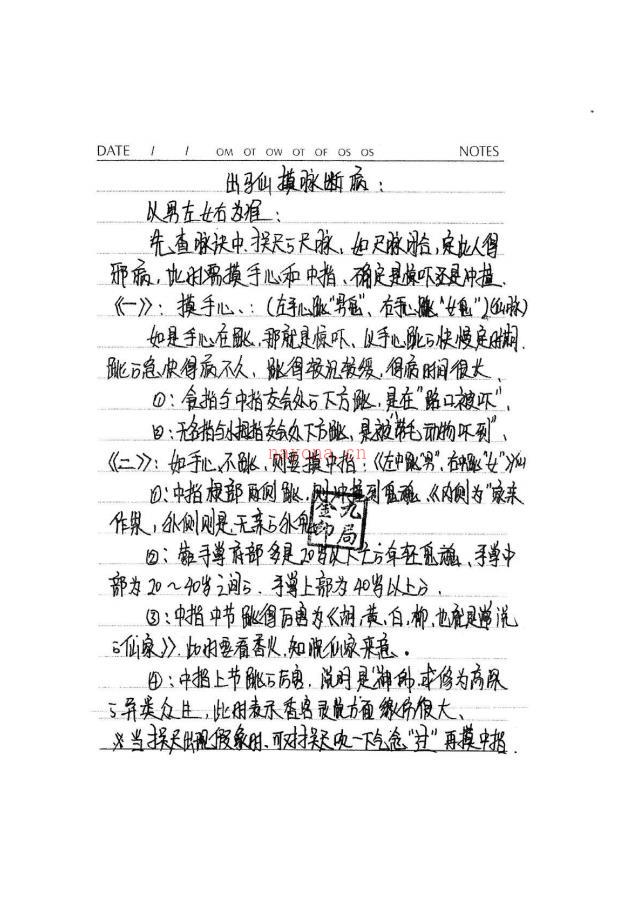 DATE / / OM OT OW OT OF OS OS NOTES
出马仙摸脉断病：
以男左女右为准：
先查脉诀中、尺脉、如尺脉闭合，定此人得
邪病，此时需摸手心和中指、确定是惊吓还是冲撞.
《一》：摸手心、：（左手心跳"男鬼"、右手心跳"女鬼"）（仙脉）
如是手心在跳，那就是惊吓、以手心跳的快慢定时间.
跳的急快得病不久，跳得较沉较缓，得病时间很久、
①：食指与中指交会处的下方跳，是在"路口被吓"，
②：无名指与小拇指交会处下方跳，是被"带毛动物吓到"，
《二》：如手心不跳，则要摸中指：《左中跳"男"，右中跳"女"》
①：中指根部两侧跳，则冲撞到鬼魂，《内侧为"家亲
作祟，外侧则是无亲的外鬼
②：手掌底部多是20岁以下的年轻鬼魂、手掌中
部为20～40岁之间的、手掌上部为40岁以上的、
③：中指中节跳得厉害为《胡，黄，白，柳，也就是常说
的仙家》，此时要看香火，知晓仙家来意。
④：中指上节跳的厉害，说明是"神师，或修为高深
的异类众生，此时表示香客灵魂方面缘份很大、
※当出现假象时，可对吹一下气念"" 再摸中指.
金光
印局
nayona.cn